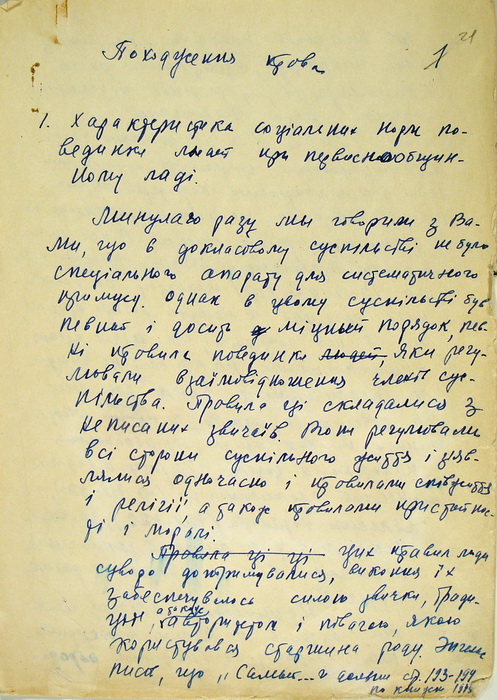 21
1
Походження права
1. Характеристика соціальних норм по-
вединки людей при первіснообщин-
ному ладі.
Минулаго разу мы говорили з Ва-
ми, що в докласовому суспільстві не було
спеціального апарату для систематичного
примусу. Однак в цьому суспільстві був
певний і досить міцный порядок, пев-
ні правила повединки людей, яки регу-
лювали взаїмовідношення членів сус-
пільства. Правила ці складалися з
неписаних звичаїв. Вони регулювали
всі сторони суспільного життя і явля-
лялися одночасно і правилами співжиття
і релігії, а також правилами пристойнос-
ті і моралі.
Правила ці ці цих правил люди
суворо дотримувалися, виконня їх
забеспечувалось силою звички, тради-
ций, а также авторитетом і повагою, якою
користувовся старшина роду. Энгельс
писав, що "Семьи... и далии ст. 193-194